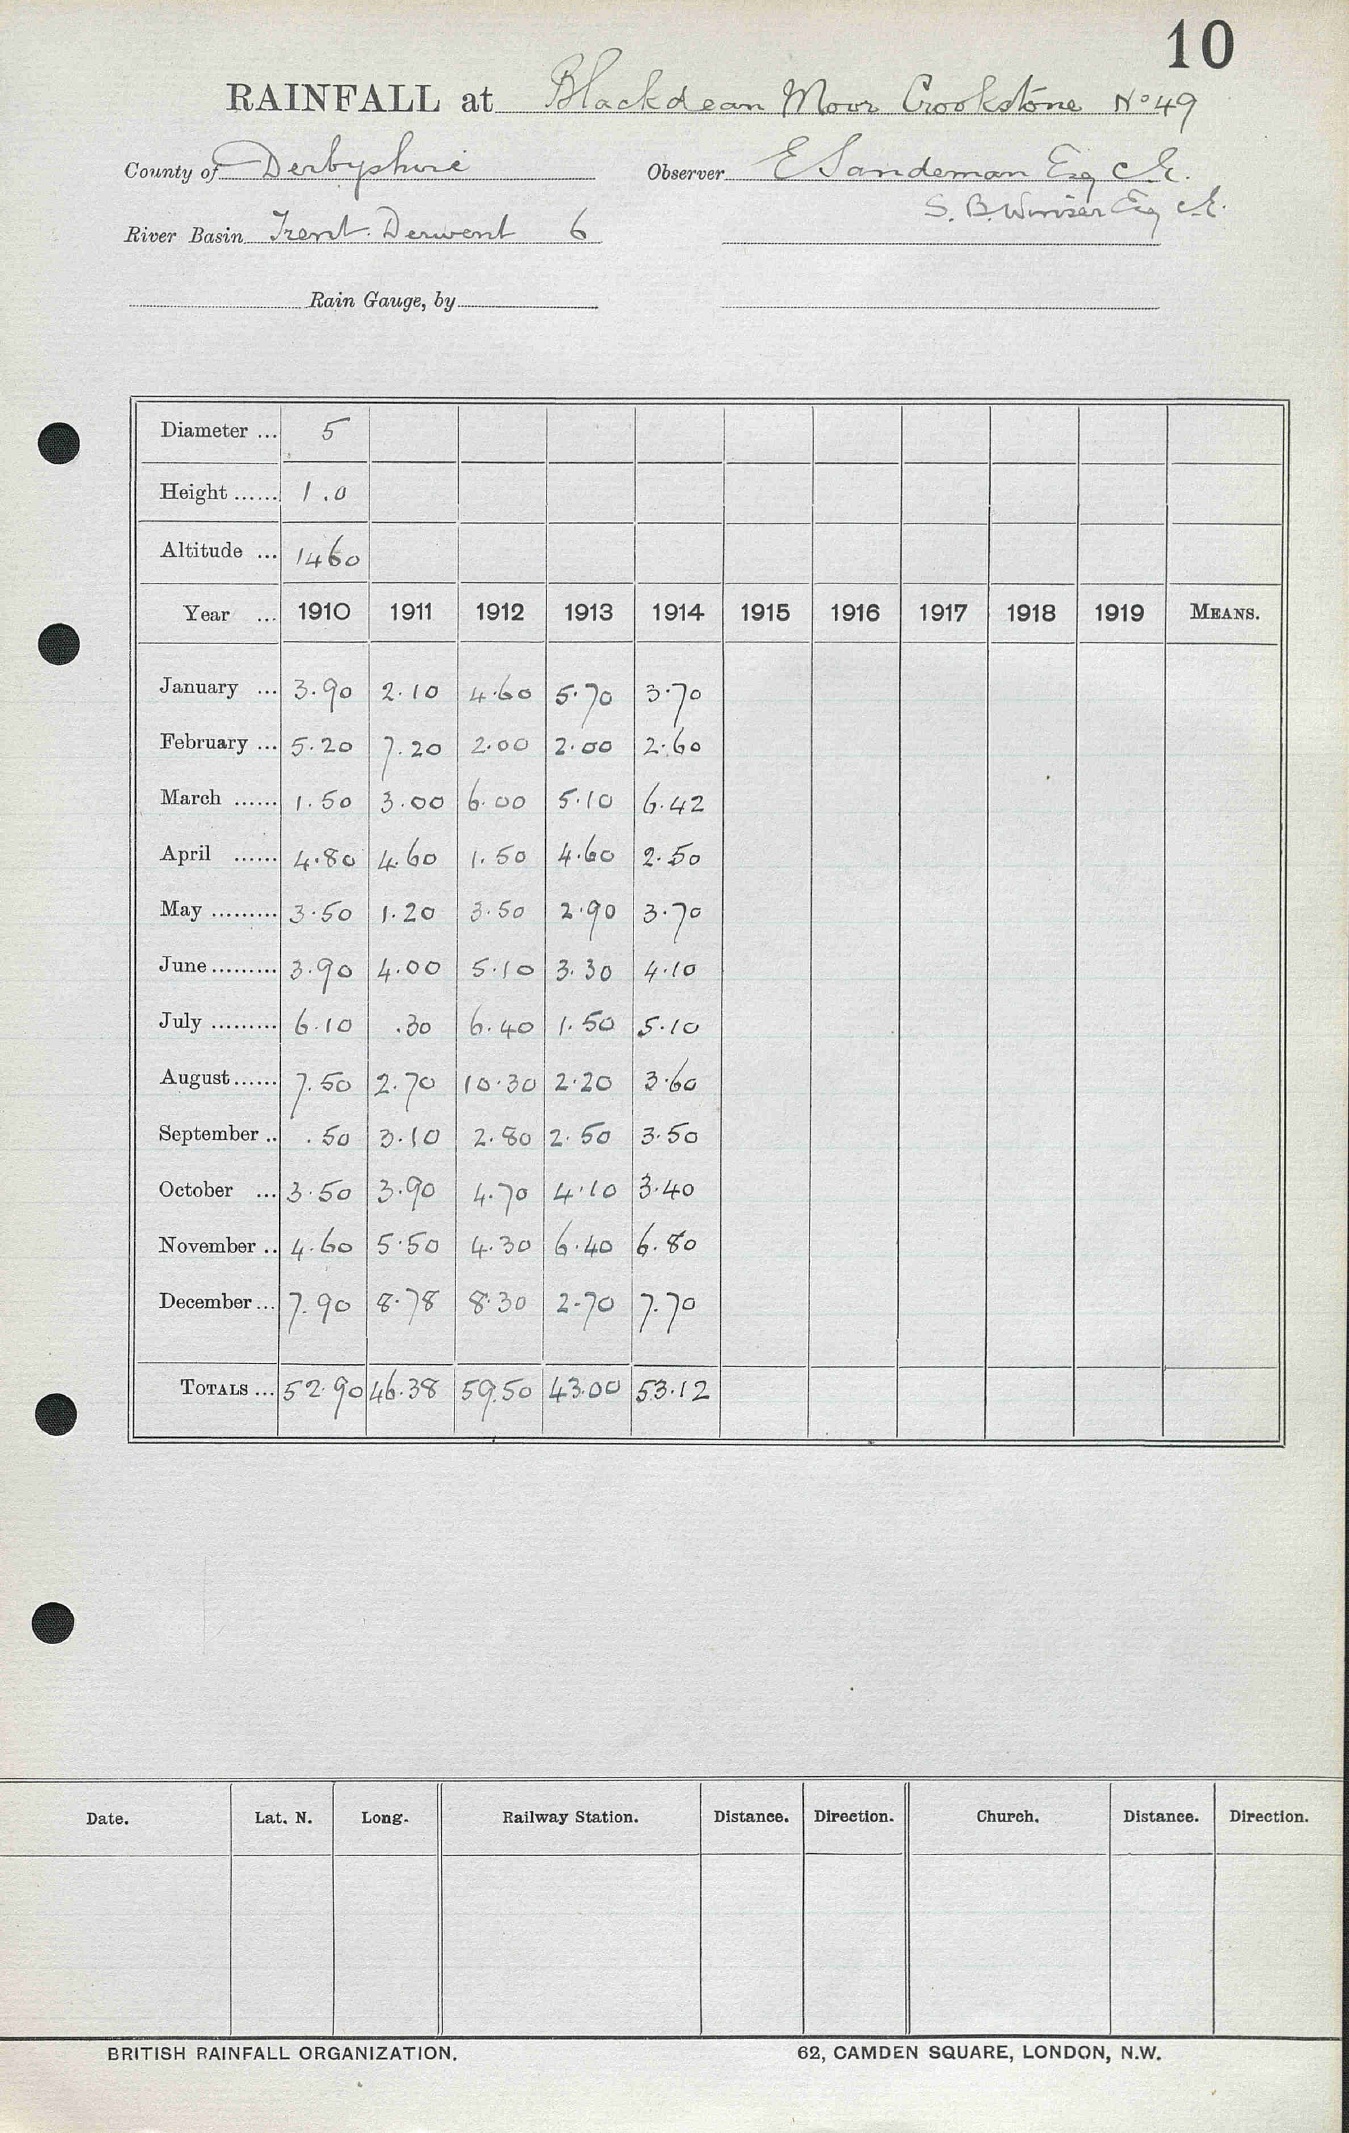 10
RAINFALL at Blackdean Moor Crookstone No 49
County of Derbyshire Observer E Sandeman Esq C.E.
S. B. Winser Esq C.E.
River Basin Trent. Derwent 6
Rain Gauge, by
Diameter ... 5
Height ...... 1.0
Altitude ... 1460
Year ... 1910 1911 1912 1913 1914 1915 1916 1917 1918 1919 MEANS.
January ... 3.90 2.10 4.60 5.70 3.70
February ... 5.20 7.20 2.00 2.00 2.60
March ...... 1.50 3.00 6.00 5.10 6.42
April ...... 4.80 4.60 1.50 4.60 2.50
May ......... 3.50 1.20 3.50 2.90 3.70
June ......... 3.90 4.00 5.10 3.30 4.10
July ......... 6.10 .30 6.40 1.50 5.10
August ...... 7.50 2.70 10.30 2.20 3.60
September .. .50 3.10 2.80 2.50 3.50
October ... 3.50 3.90 4.70 4.10 3.40
November .. 4.60 5.50 4.30 6.40 6.80
December ... 7.90 8.78 8.30 2.70 7.70
TOTALS ... 52.90 46.38 59.50 43.00 53.12
Date. Lat. N. Long. Railway Station. Distance. Direction. Church. Distance. Direction.
BRITISH RAINFALL ORGANIZATION. 62, CAMDEN SQUARE, LONDON, N.W.